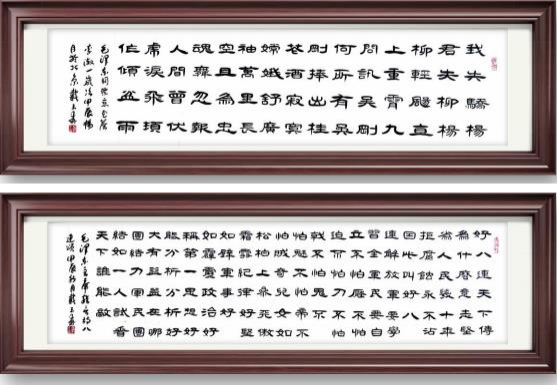 我失驕楊
君失柳楊
柳輕颺直
上重霄九
問訊吳剛
何所有吳
剛捧出桂
花酒寂寞
嫦娥舒廣
袖萬里長
空且為忠
魂舞忽報
人間曾伏
虎淚飛頓
作傾盆雨
毛澤東同志蝶戀花答
李淑一
好八連天下傳
為什麼意志堅
為人民幾十年
拒腐蝕永不沾
因此叫好八
連解放軍要學
習全軍民要自
立不怕壓不怕
迫不怕刀不怕
戟不怕鬼不
怕魅不怕帝不
怕賊奇兒女如
松柏上參天傲
霜雪紀律好堅
如壁軍事好
如霹靂政治好
稱第一思想好
能分析分析好
大有益益在哪
團結力軍民團
結如一人試看
天下誰能敵